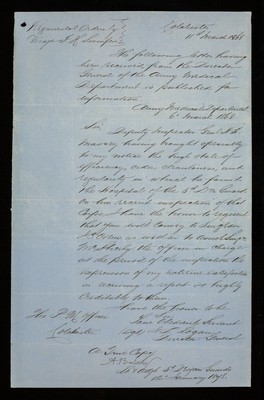 Regimental Orders by
Major
Colchester
11th March 1868
The following letter having
been received from the Director
General of the Army Medical
Department is published for
information
Army Medical Department
6th March 1868
Sir,
Deputy Inspector Genl
having brought specially
to my notice the high state of
efficiency, order, cleanliness, and
regularity in which he found
the Hospital of the 5th Dn Guards
on his recent inspection of that
Corps, I have the honor to request
that you will convey to Surgeon
as well as to Assist Surgn
the officer in charge
at the period of the inspection the
expression of my entire satisfaction
in receiving a report so highly
Creditable to them.
I have the honor to be
Sir
Your Obedient Servant
Logan
Director General
The P. M. Officer
Colchester
A True Copy
5th Dragoon Guards
January